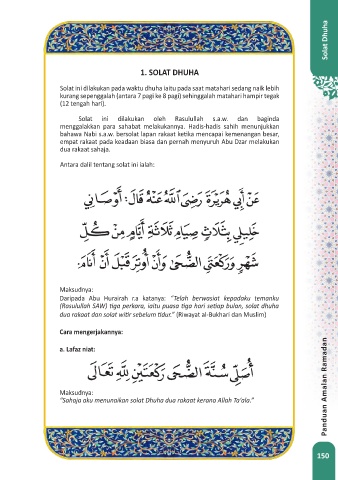 Solat Dhuha
1. SOLAT DHUHA
Solat ini dilakukan pada waktu dhuha iaitu pada saat matahari sedang naik lebih
kurang sepenggalah (antara 7 pagi ke 8 pagi) sehinggalah matahari hampir tegak
(12 tengah hari).
Solat ini dilakukan oleh Rasulullah s.a.w. dan baginda
menggalakkan para sahabat melakukannya. Hadis-hadis sahih menunjukkan
bahawa Nabi s.a.w. bersolat lapan rakaat ketika mencapai kemenangan besar,
empat rakaat pada keadaan biasa dan pernah menyuruh Abu Dzar melakukan
dua rakaat sahaja.
Antara dalil tentang solat ini ialah:
عَنْ أَبِي هُرَيْرَةَ رَضِيَ ٱللَّهُ عَنْهُ قَالَ: أَوْصَانِي
خَلِيلِي بِثَلَاثٍ صِيَامِ ثَلَاثَةِ أَيَّامٍ مِنْ كُلِّ
شَهْرٍ وَرَكْعَتَيِ الضُّحَىٰ وَأَنْ أُوتِرَ قَبْلَ أَنْ أَنَامَ.
Maksudnya:
Daripada Abu Hurairah r.a katanya: "Telah berwasiat kepadaku temanku
(Rasulullah SAW) tiga perkara, iaitu puasa tiga hari setiap bulan, solat dhuha
dua rakaat dan solat witir sebelum tidur." (Riwayat al-Bukhari dan Muslim)
Cara mengerjakannya:
a. Lafaz niat:
أُصَلِّي سُنَّةَ الضُّحَىٰ رَكْعَتَيْنِ لِلَّهِ تَعَالَىٰ
Maksudnya:
"Sahaja aku menunaikan solat Dhuha dua rakaat kerana Allah Ta'ala."
Panduan Amalan Ramadan
150